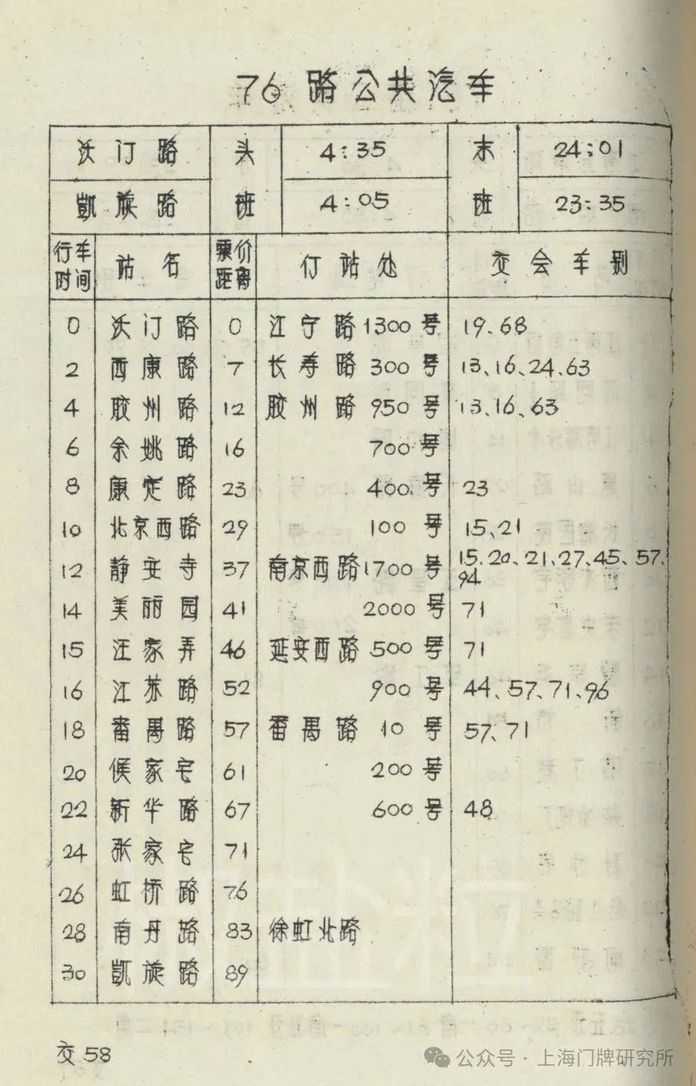 76 路公共汽车
沃汀路 头 4:35 末 24:01
凱旋路 班 4:05 班 23:35
行车时间 站名 票价距离 仃站处 交会车别
0 沃汀路 0 江宁路1300号 19、68
2 西康路 7 长寿路300号 13、16、24、63
4 胶州路 12 胶州路950号 13、16、63
6 余姚路 16 700号
8 康定路 23 400号 23
10 北京西路 29 100号 15、21
12 静安寺 37 南京西路1700号 15、20、21、27、45、57、94
14 美丽园 41 2000号 71
15 汪家弄 46 延安西路500号 71
16 江苏路 52 900号 44、57、71、96
18 番禺路 57 番禺路10号 57、71
20 候家宅 61 200号
22 新华路 67 600号 48
24 张家宅 71
26 虹桥路 76
28 南丹路 83 徐虹北路
30 凱旋路 89
交58
公众号·上海门牌研究所